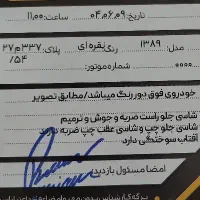 تاریخ: ۰۴,۰۶,۰۹ ساعت: ۱۱,۰۰
مدل: ۱۳۸۹ رنگ نقره ای پلاک: ۳۳۷م۲۷
/۵۴
۰۰۰۰ شماره موتور:
خودروی فوق دور رنگ میباشد/مطابق تصویر
شاسی جلو راست ضربه و جوش و ترمیم
شاسی جلو چپ و شاسی عقب چپ ضربه دارند
آفتاب سوختگی دارد
امضا مسئول بازدید:
برگه کارشناسی بدون مهر و امضاء